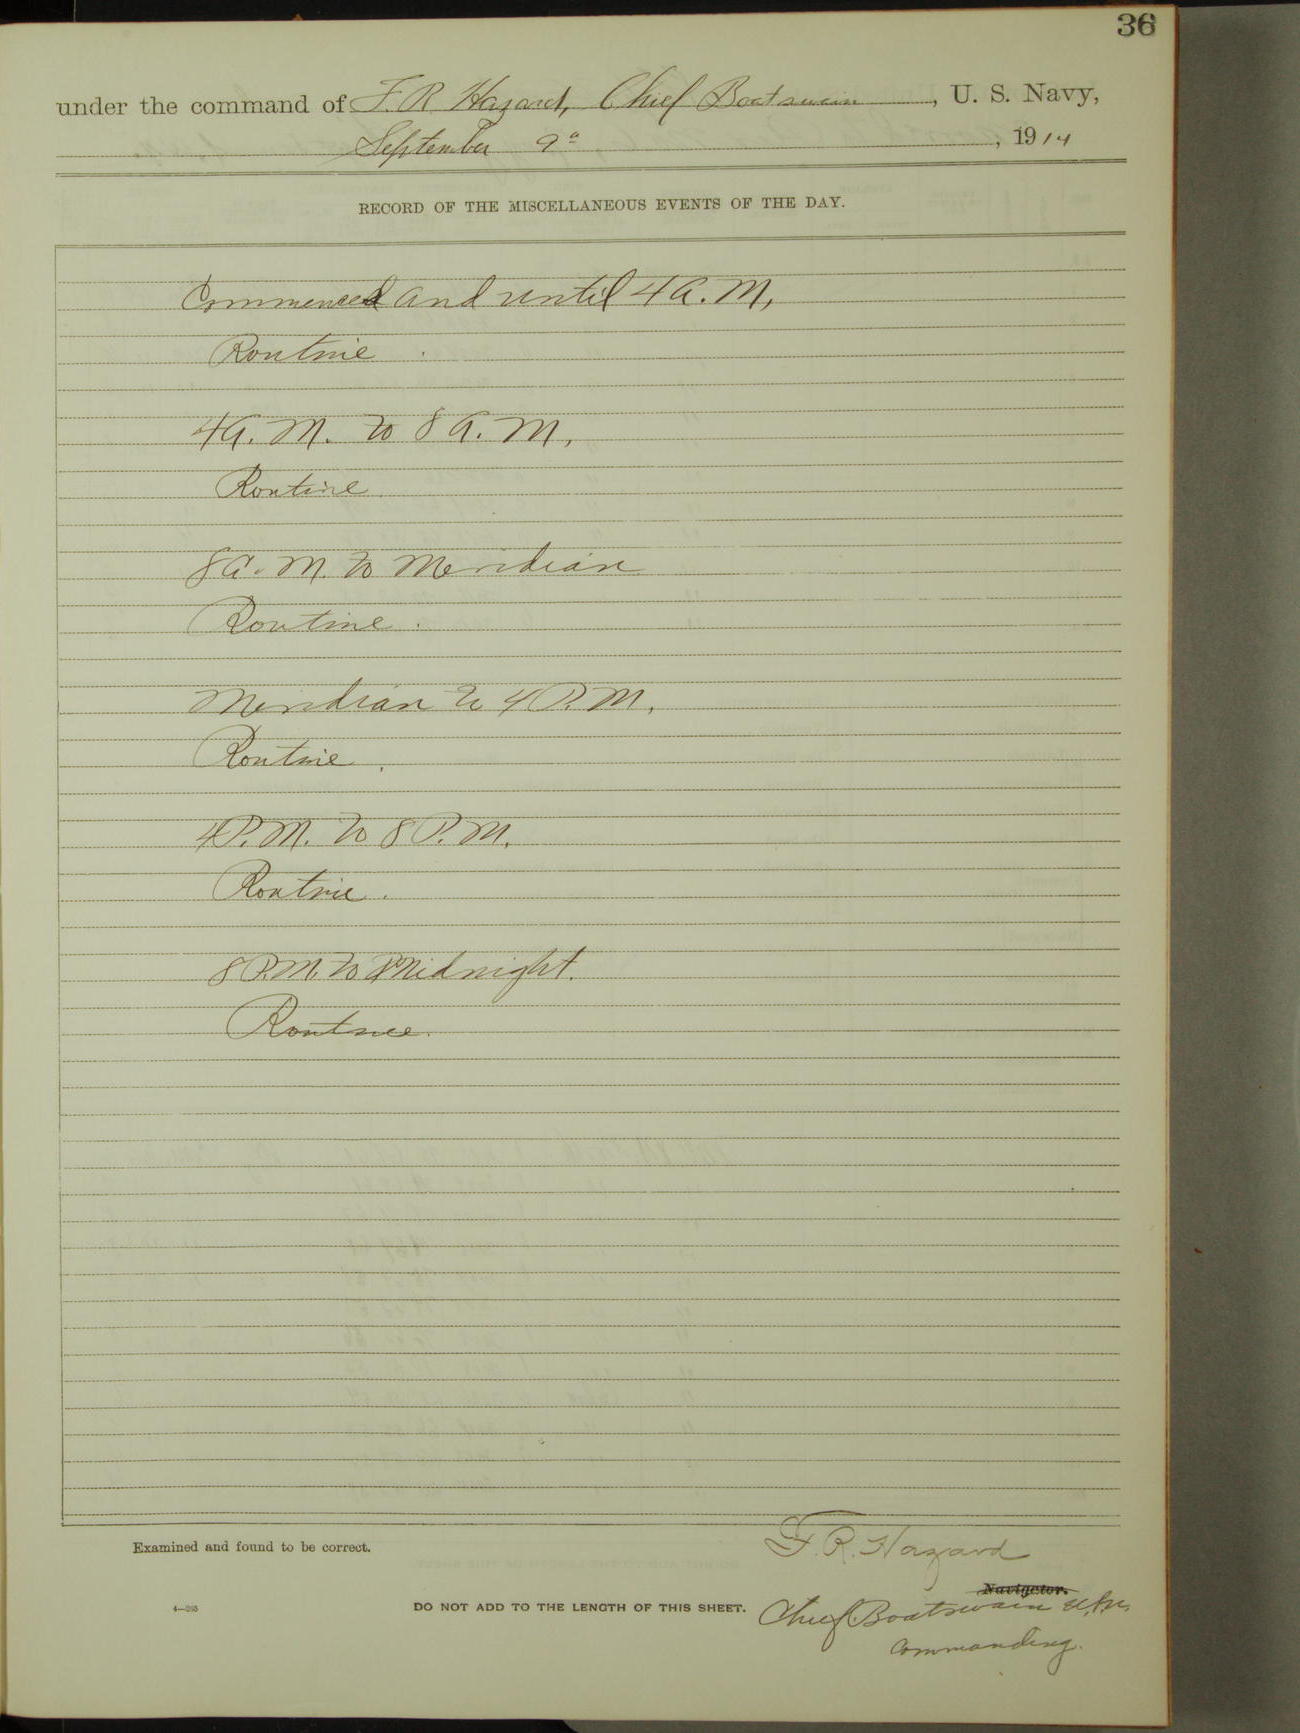 36
under the command of F. R. Hazard, Chief Boatswain, U. S. Navy,
September 9", 1914
RECORD OF THE MISCELLANEOUS EVENTS OF THE DAY.
Commenced and until 4 A. M,
Routine.
4 A. M. to 8 A. M.
Routine.
8 A. M. to Meridian
Routine.
Meridian to 4 P. M.
Routine.
4 P. M. to 8 P. M.
Routine.
8 P. M. to Midnight.
Routine.
Examined and found to be correct.
F. R. Hazard
Navigator.
4—265
DO NOT ADD TO THE LENGTH OF THIS SHEET.
Chief Boatswain U.S.N.
Commanding.